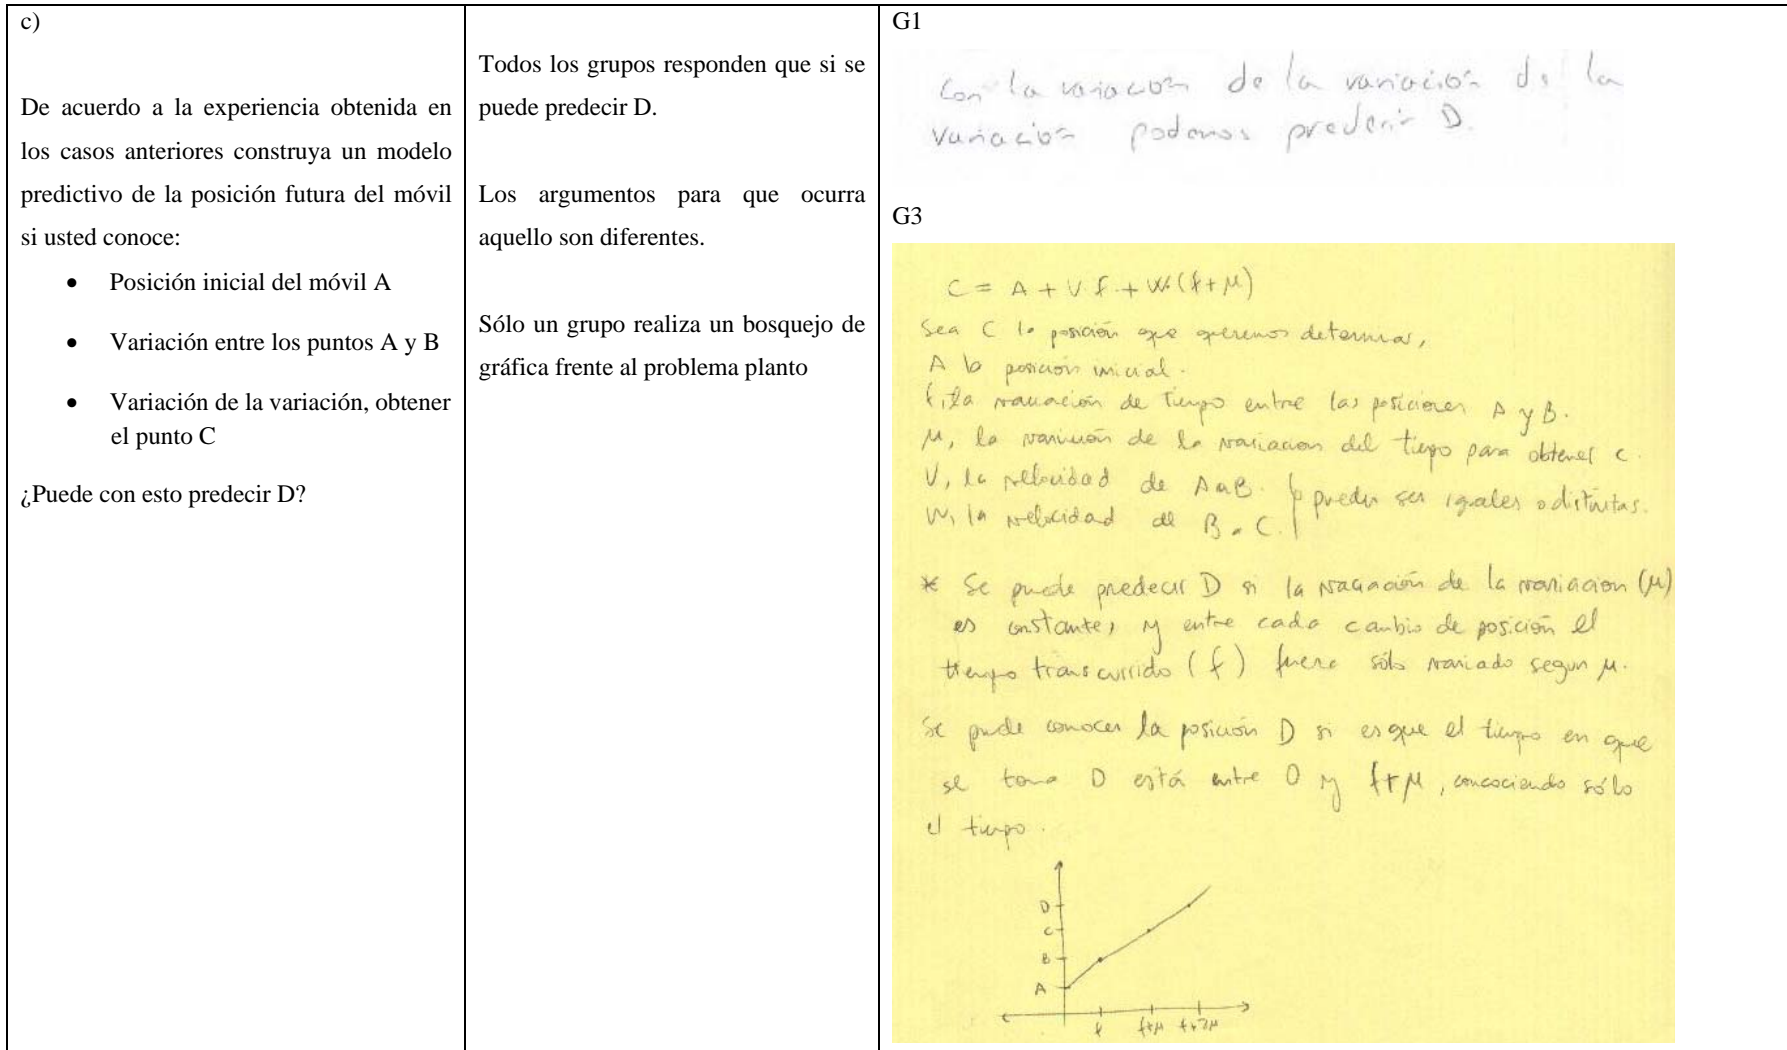 c)
De acuerdo a la experiencia obtenida en
los casos anteriores construya un modelo
predictivo de la posición futura del móvil
si usted conoce:
• Posición inicial del móvil A
• Variación entre los puntos A y B
• Variación de la variación, obtener
el punto C
¿Puede con esto predecir D?
Todos los grupos responden que si se
puede predecir D.
Los argumentos para que ocurra
aquello son diferentes.
Sólo un grupo realiza un bosquejo de
gráfica frente al problema planto
G1
Con la variación de la variación de la
variación podemos predecir D.
G3
C = A + V t + W(t+μ)
Sea C la posición que queremos determinar,
A la posición inicial.
t, la variación de tiempo entre las posiciones A y B.
μ, la variación de la variacion del tiempo para obtener c.
V, la velocidad de A a B.
W, la velocidad de B a C.
pueden ser iguales o distintas.
* Se puede predecir D si la variación de la variacion (μ)
es constante, y entre cada cambio de posición el
tiempo transcurrido (t) fuera sólo variado segun μ.
Se puede conocer la posición D si es que el tiempo en que
se toma D está entre 0 y t+μ, concociendo sólo
el tiempo.
D
C
B
A
t t+μ t+2μ